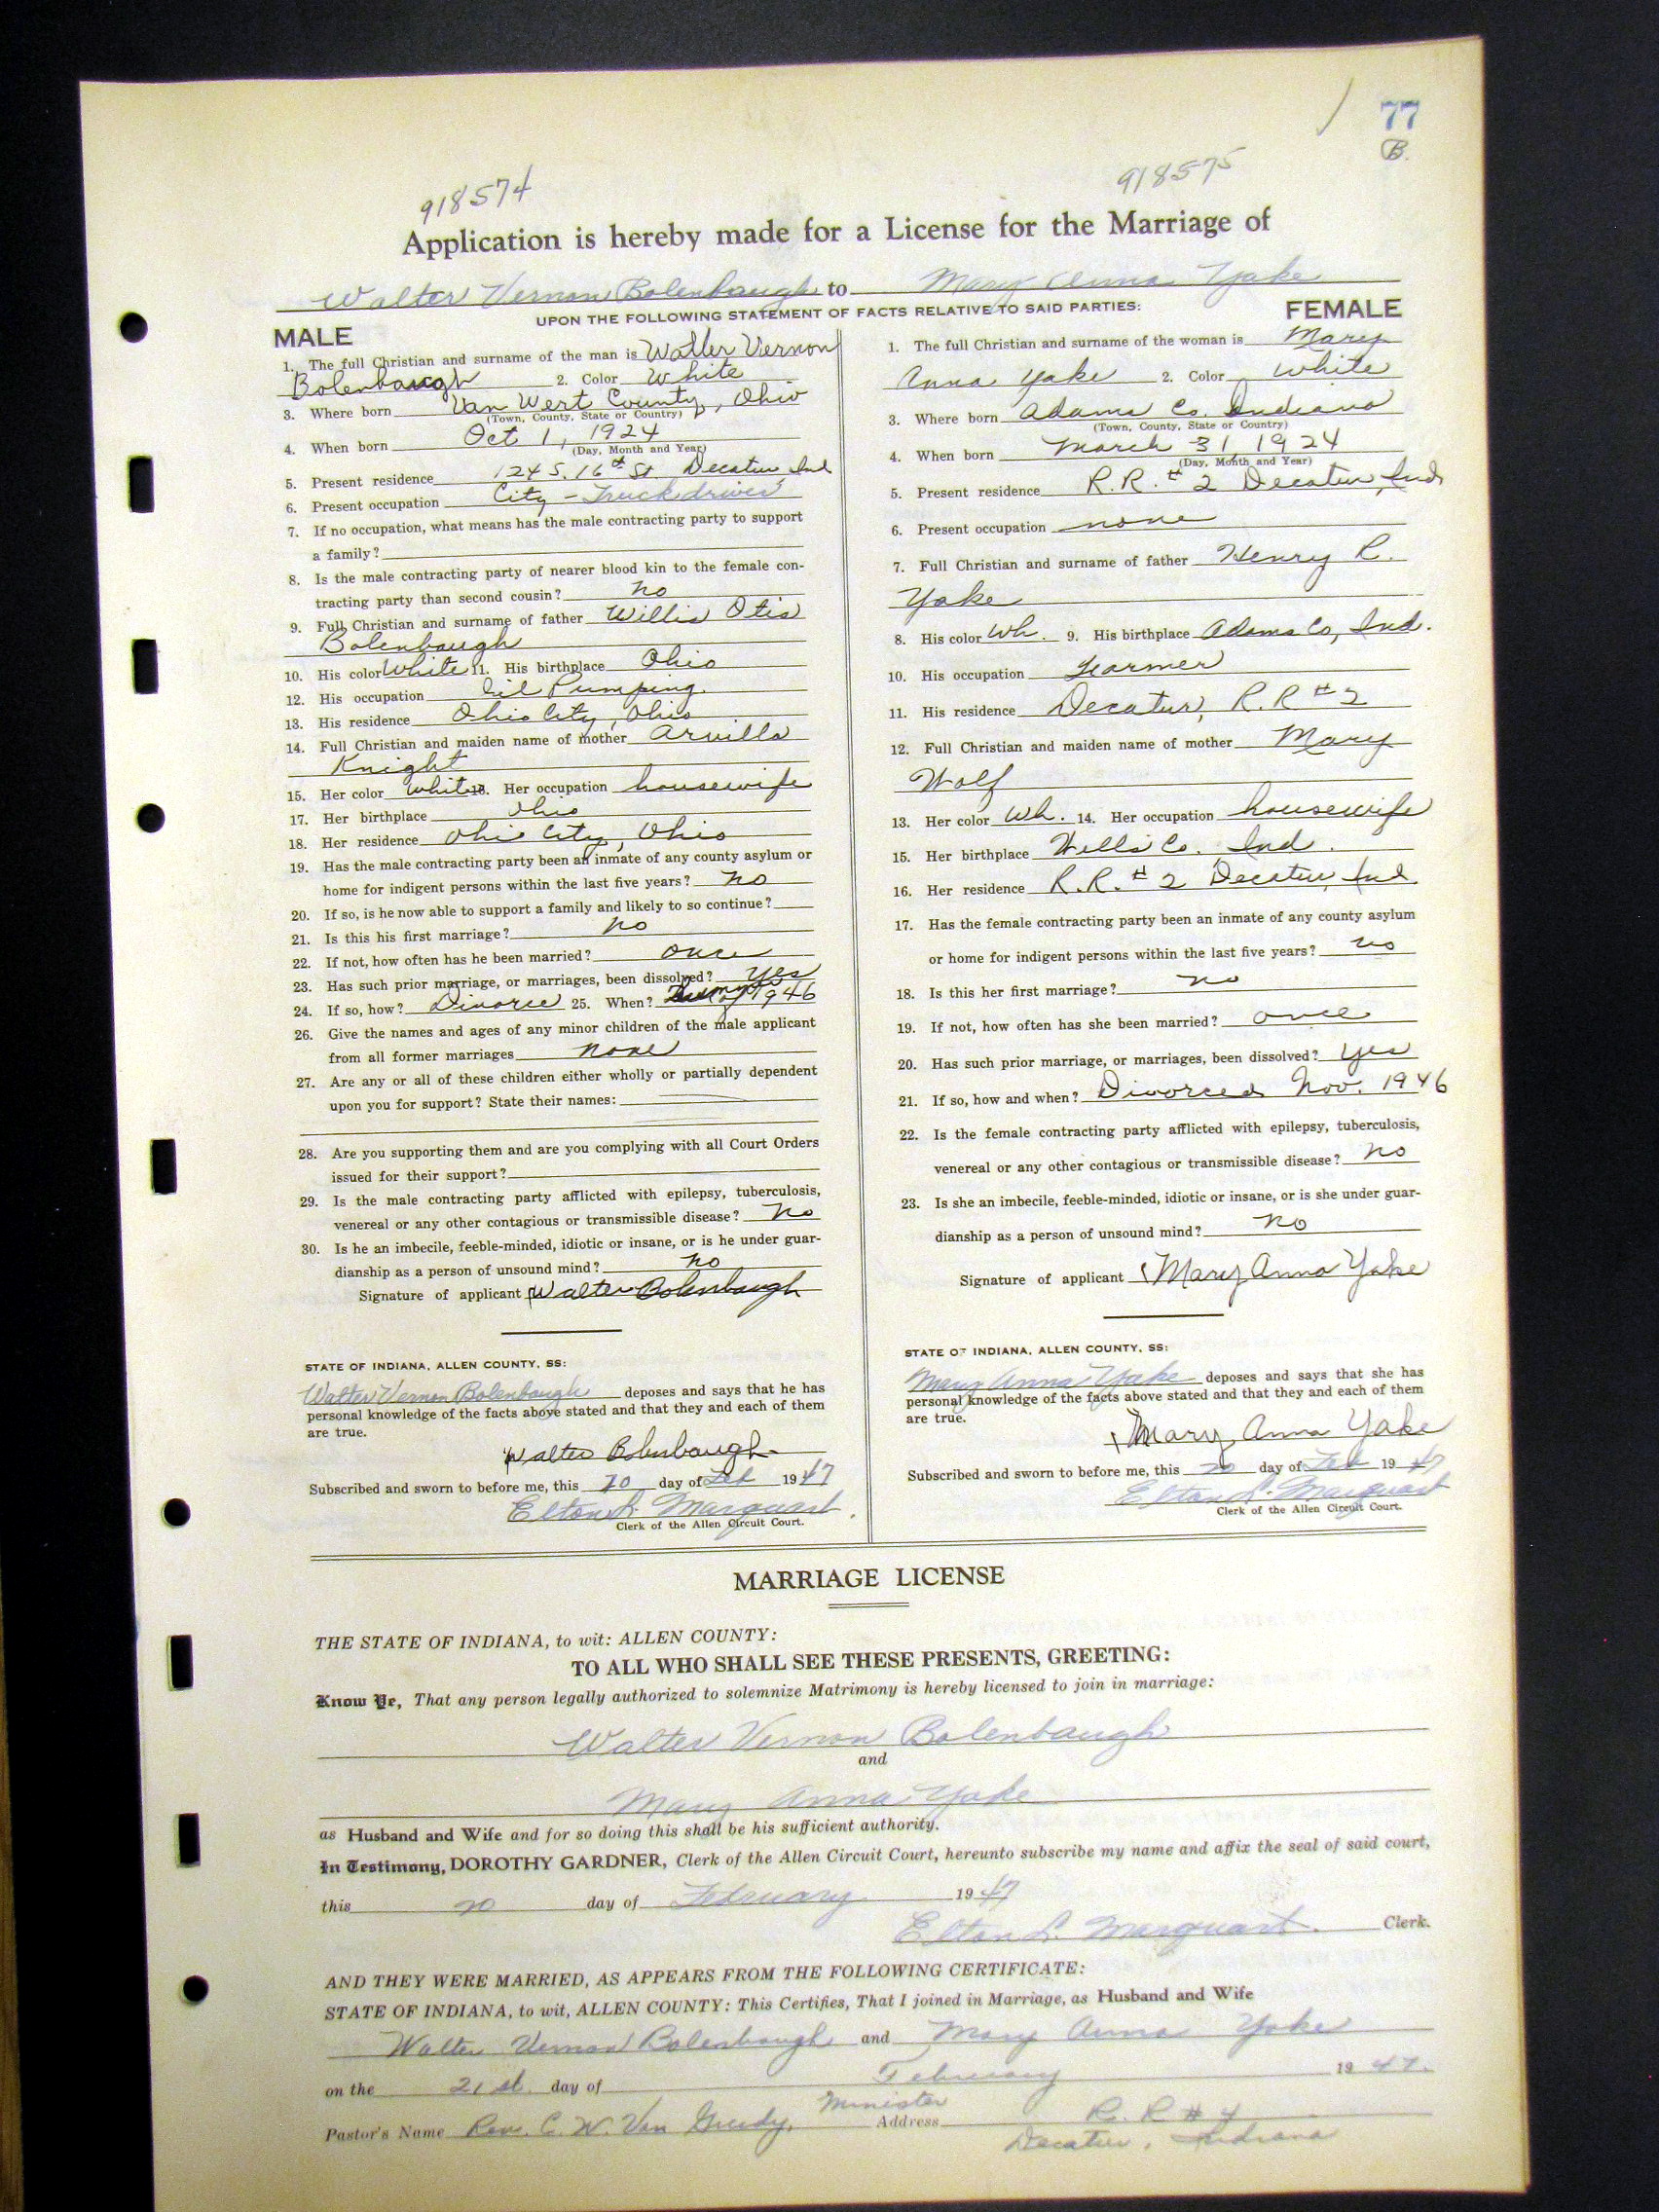 77
B.
918574
918575
Application is hereby made for a License for the Marriage of
Walter Vernon Bolenbaugh to Mary Anna Yake
UPON THE FOLLOWING STATEMENT OF FACTS RELATIVE TO SAID PARTIES:
MALE
1. The full Christian and surname of the man is Walter Vernon
Bolenbaugh 2. Color White
3. Where born Van Wert County, Ohio
(Town, County, State or Country)
4. When born Oct 1, 1924
(Day, Month and Year)
5. Present residence 124 S. 16th St. Decatur Ind
6. Present occupation City - Truck driver
7. If no occupation, what means has the male contracting party to support
a family?
8. Is the male contracting party of nearer blood kin to the female con-
tracting party than second cousin? No
9. Full Christian and surname of father Willis Otis
Bolenbaugh
10. His color White 11. His birthplace Ohio
12. His occupation Oil Pumping.
13. His residence Ohio City, Ohio
14. Full Christian and maiden name of mother Arvilla
Knight
15. Her color White 16. Her occupation housewife
17. Her birthplace Ohio
18. Her residence Ohio City, Ohio
19. Has the male contracting party been an inmate of any county asylum or
home for indigent persons within the last five years? No
20. If so, is he now able to support a family and likely to so continue?
21. Is this his first marriage? No
22. If not, how often has he been married? once
23. Has such prior marriage, or marriages, been dissolved? Yes
24. If so, how? Divorce 25. When? 1946
26. Give the names and ages of any minor children of the male applicant
from all former marriages none
27. Are any or all of these children either wholly or partially dependent
upon you for support? State their names:
28. Are you supporting them and are you complying with all Court Orders
issued for their support?
29. Is the male contracting party afflicted with epilepsy, tuberculosis,
venereal or any other contagious or transmissible disease? No
30. Is he an imbecile, feeble-minded, idiotic or insane, or is he under guar-
dianship as a person of unsound mind? No
Signature of applicant Walter Bolenbaugh
STATE OF INDIANA, ALLEN COUNTY, SS:
Walter Vernon Bolenbaugh deposes and says that he has
personal knowledge of the facts above stated and that they and each of them
are true.
Walter Bolenbaugh
Subscribed and sworn to before me, this 20 day of Feb 1947
Elton L. Marquart
Clerk of the Allen Circuit Court.
FEMALE
1. The full Christian and surname of the woman is Mary
Anna Yake 2. Color White
3. Where born Adams Co. Indiana
(Town, County, State or Country)
4. When born March 31, 1924
(Day, Month and Year)
5. Present residence R.R. # 2 Decatur, Ind
6. Present occupation none
7. Full Christian and surname of father Henry R.
Yake
8. His color Wh. 9. His birthplace Adams Co, Ind.
10. His occupation Farmer
11. His residence Decatur, R.R # 2
12. Full Christian and maiden name of mother Mary
Wolf
13. Her color Wh. 14. Her occupation housewife
15. Her birthplace Wells Co. Ind.
16. Her residence R.R. # 2 Decatur, Ind
17. Has the female contracting party been an inmate of any county asylum
or home for indigent persons within the last five years? No
18. Is this her first marriage? No
19. If not, how often has she been married? once
20. Has such prior marriage, or marriages, been dissolved? Yes
21. If so, how and when? Divorced Nov. 1946
22. Is the female contracting party afflicted with epilepsy, tuberculosis,
venereal or any other contagious or transmissible disease? No
23. Is she an imbecile, feeble-minded, idiotic or insane, or is she under guar-
dianship as a person of unsound mind? No
Signature of applicant Mary Anna Yake
STATE OF INDIANA, ALLEN COUNTY, SS:
Mary Anna Yake deposes and says that she has
personal knowledge of the facts above stated and that they and each of them
are true.
Mary Anna Yake
Subscribed and sworn to before me, this 20 day of Feb 1947
Elton L. Marquart
Clerk of the Allen Circuit Court.
MARRIAGE LICENSE
THE STATE OF INDIANA, to wit: ALLEN COUNTY:
TO ALL WHO SHALL SEE THESE PRESENTS, GREETING:
Know Ye, That any person legally authorized to solemnize Matrimony is hereby licensed to join in marriage:
Walter Vernon Bolenbaugh
and
Mary Anna Yake
as Husband and Wife and for so doing this shall be his sufficient authority.
In Testimony, DOROTHY GARDNER, Clerk of the Allen Circuit Court, hereunto subscribe my name and affix the seal of said court,
this 20 day of February 1947
Elton L. Marquart. Clerk.
AND THEY WERE MARRIED, AS APPEARS FROM THE FOLLOWING CERTIFICATE:
STATE OF INDIANA, to wit, ALLEN COUNTY: This Certifies, That I joined in Marriage, as Husband and Wife
Walter Vernon Bolenbaugh and Mary Anna Yake
on the 21st. day of February 1947.
Pastor's Name Rev. C. W. Van Minister Address R. R # 4
Decatur, Indiana